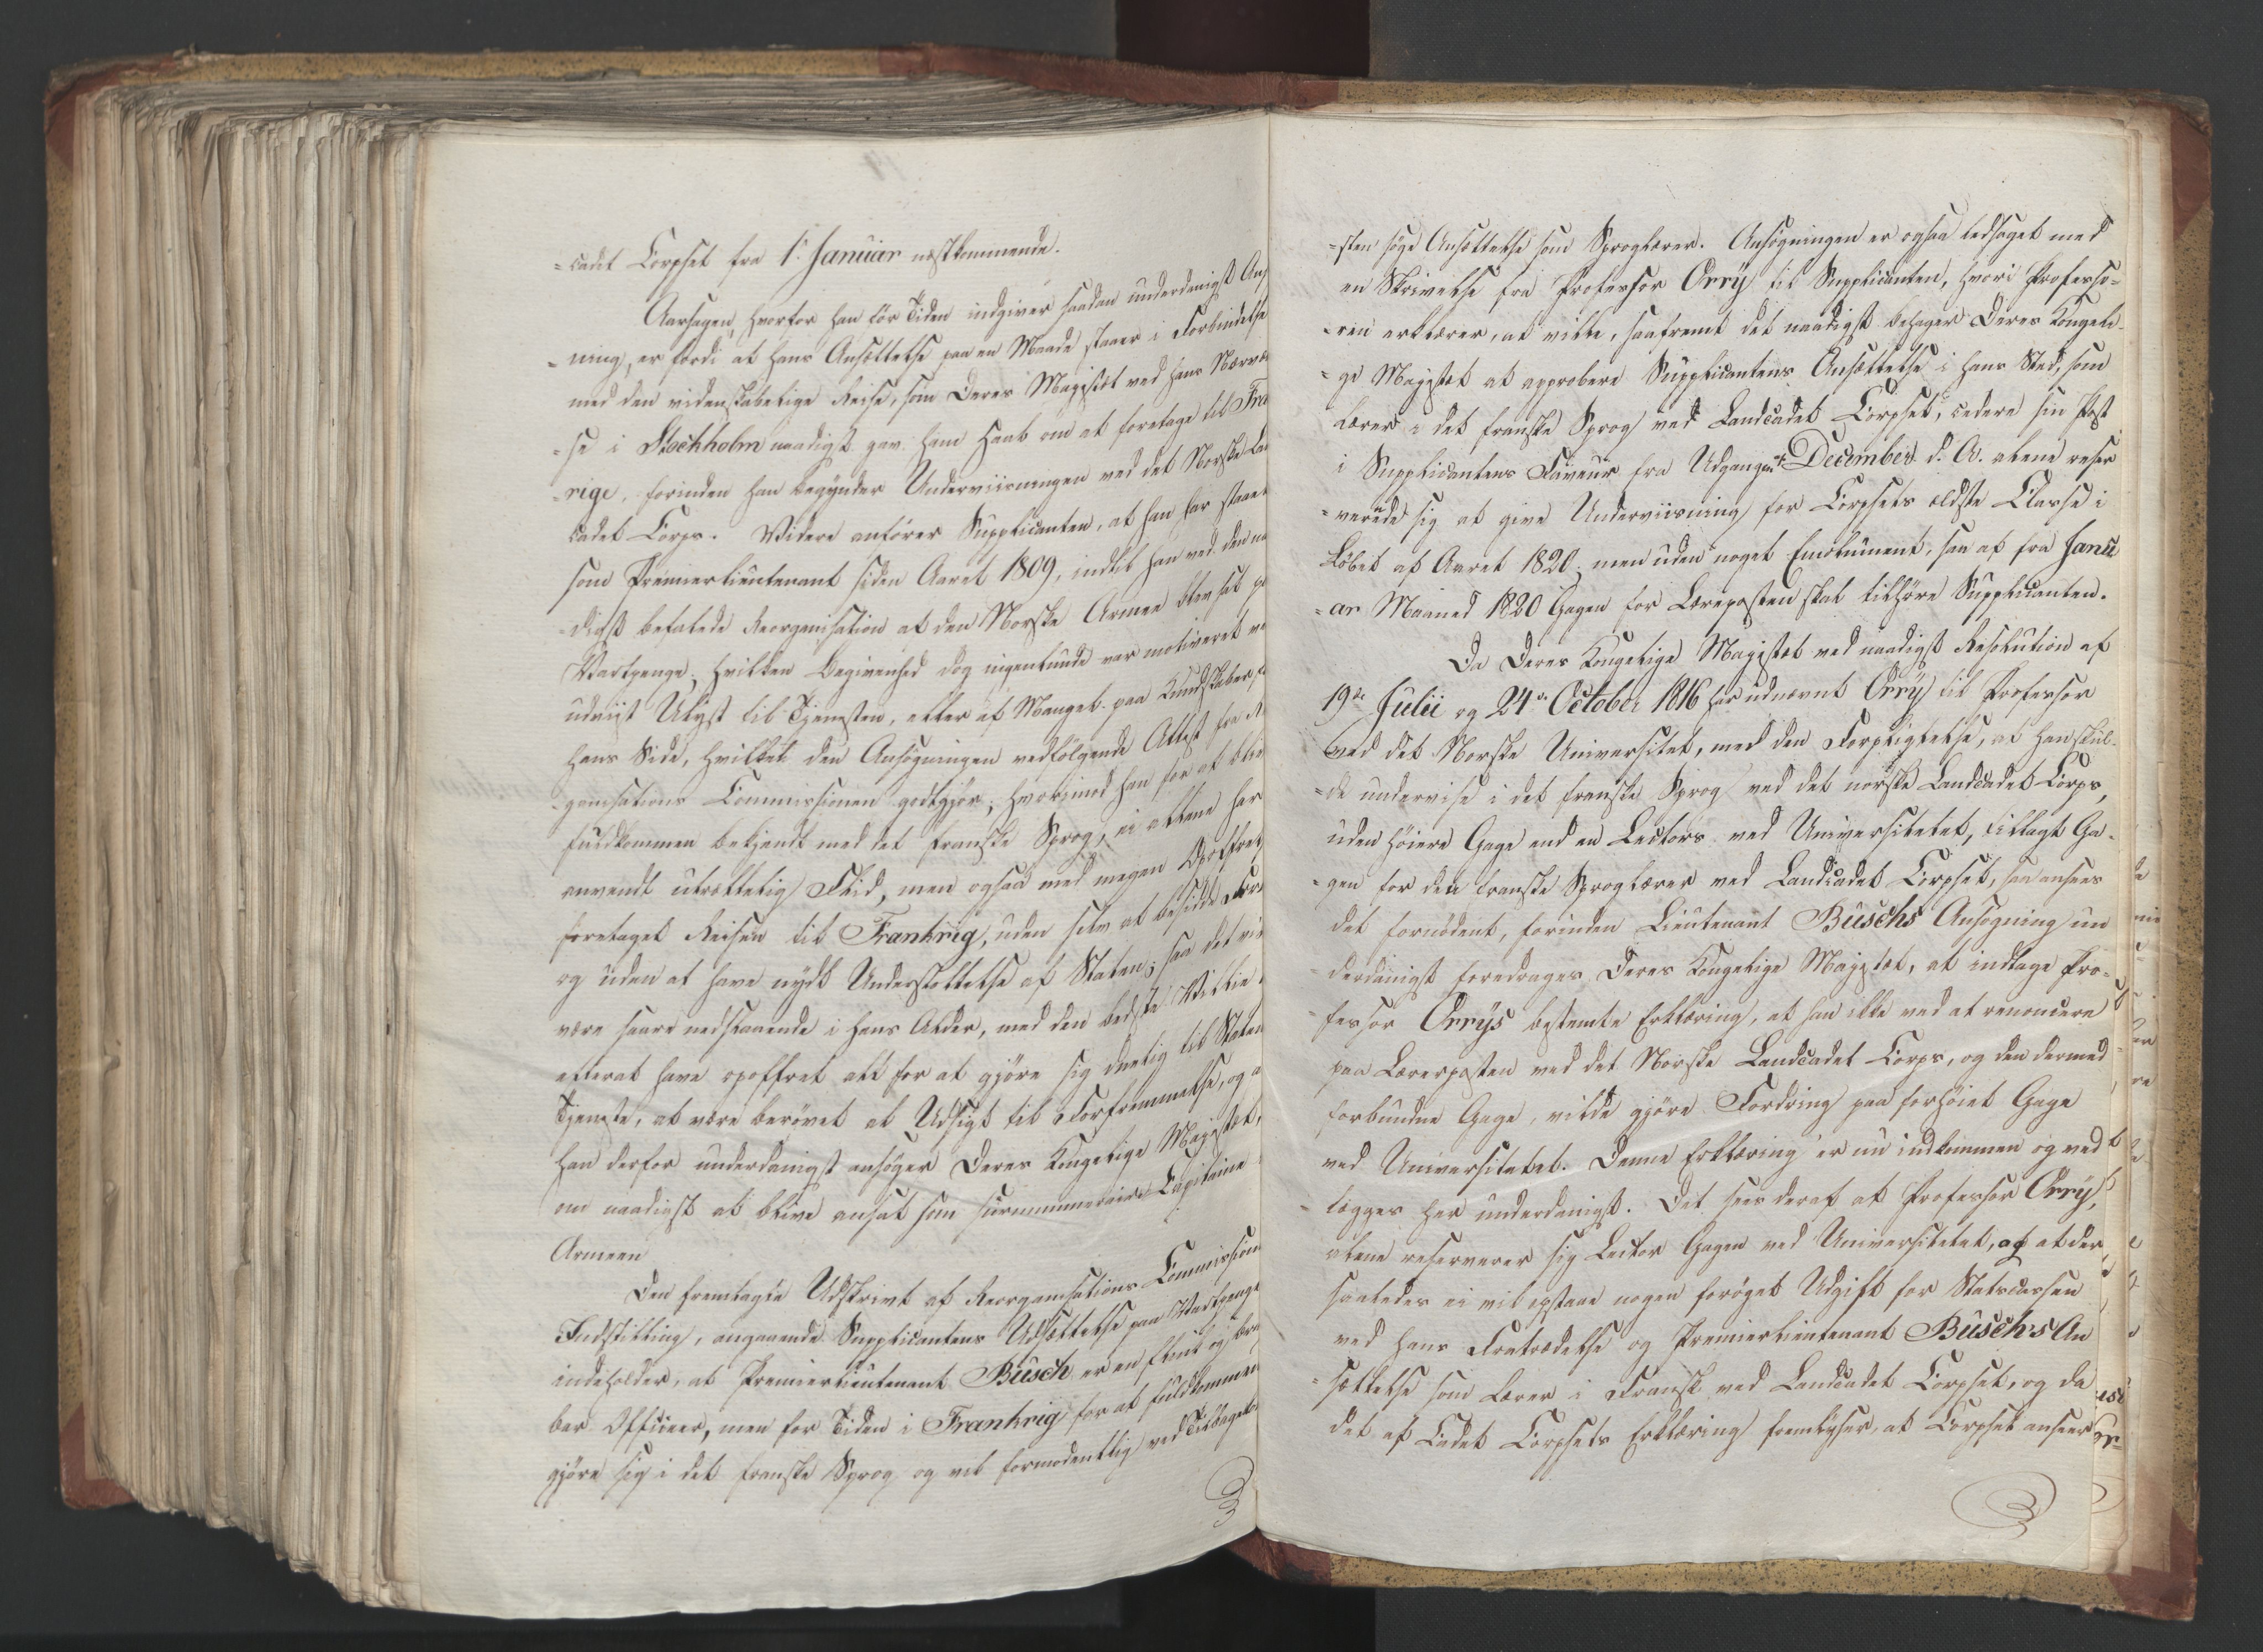 =cadet Corpset fra 1ste Januar næstkommende.
Aarsagen, hvorfor han før Tiden indgiver saadan underdanigst Ansøg
=ning, er fordi at hans Ansættelse paa en Maade staaer i Forbindelse
med den videnskabelige Reise, som Deres Majestæt ved hans Nærvæ
=se i Stockholm naadigst gav ham Haab om at foretage til Fra
=rige, forinden han begynder Underviisningen ved det Norske Lan
cadet Corps. Videre anfører Supplicanten, at han har staaet
som Premierlieutenant siden Aaret 1809, indtil han ved den na
=digst befalede Reorganisation af den Norske Armee blev sat p
Vartpenge, hvilken Begivenhed dog ingenlunde var motiveret ve
udviist Ulyst til Tjenesten, eller af Mangel paa Kundskaber fr
hans Side, hvilket den Ansøgningen vedfølgende Attest fra R
=ganisations Commissionen godtgjør; hvorimod han for at bliv
fuldkommen bekjendt med det franske Sprog, ei allene har
anvendt utrættelig Flid, men ogsaa med megen Opoffrelse
foretaget Reisen til Frankrig, uden selv at besidde For
og uden at have nydt Understøttelse af Staten; saa det vil
være saare nedslaaende i hans Alder, med den bedste Villie
efterat have opoffret alt for at gjøre sig duelig til Staten
Tjeneste, at være berøvet al Udsigt til Forfremmelse, og a
han derfor underdanigst ansøger Deres Kongelige Majestæt,
om naadigst at blive ansat som surnummerair Capitaine
Armeen
Den fremlagte Udskrivt af Reorganisations Commission
Indstilling, angaaende Supplicantens Udsættelse paa Vartpenge
indeholder, at Premierlieutenant Büsch er en flink og bru
bar Officeer, men for Tiden i Frankrig for at fuldkommen
gjøre sig i det franske Sprog og vil formodentlig ved Tilbageko
=sten søge Ansættelse som Sproglærer. Ansøgningen er ogsaa ledsaget med
en Skrivelse fra Professor Orry til Supplicanten, hvori Professo=
=ren erklærer, at ville, saafremt det naadigst behager Deres Kongeli=
=ge Majestæt at approbere Supplicantens Ansættelse i hans Sted, som
Lærer i det franske Sprog ved Landcadet Corpset, cedere sin Post
i Supplicantens Faveur fra Udgangen af December d. A. alene reser
=verede sig at give Underviisning for Corpsets ældste Classe i
Løbet af Aaret 1820, men uden noget Emolument, saa at fra Janu
=ar Maaned 1820 Gagen for Lærerposten skal tilhøre Supplicanten.
Da Deres Kongelige Majestæt ved naadigst Resolution af
19de Julii og 24de October 1816 har udnævnt Orry til Professor
ved det Norske Universitet, med den Forpligtelse, at han skul=
=de undervise i det franske Sprog ved det norske Landcadet Corps,
uden høiere Gage end en Lectors ved Universitetet, tillagt Ga=
=gen for den franske Sproglærer ved Landcadet Corpset, saa ansees
det fornødent, forinden Lieutenant Büschs Ansøgning un
derdanigst foredrages Deres Kongelige Majestæt, at indtage Pro=
fessor Orrys bestemte Erklæring, at han ikke ved at renoncere
paa Lærerposten ved det Norske Landcadet Corps, og den dermed
forbundne Gage, vilde gjøre Fordring paa forhøiet Gage
ved Universitetet. Denne Erklæring er nu indkommen og ved
lægges her underdanigst. Det sees deraf at Professor Orry,
alene reserverer sig Lector Gagen ved Universitetet, og at der
saaledes ei vil opstaae nogen forøget Udgift for Statscassen
ved hans Fratrædelse og Premierlieutenant Büschs An
=sættelse som Lærer i Fransk ved Landcadet Corpset, og da
det af Cadet Corpsets Erklæring fremlyser, at Corpset anseer